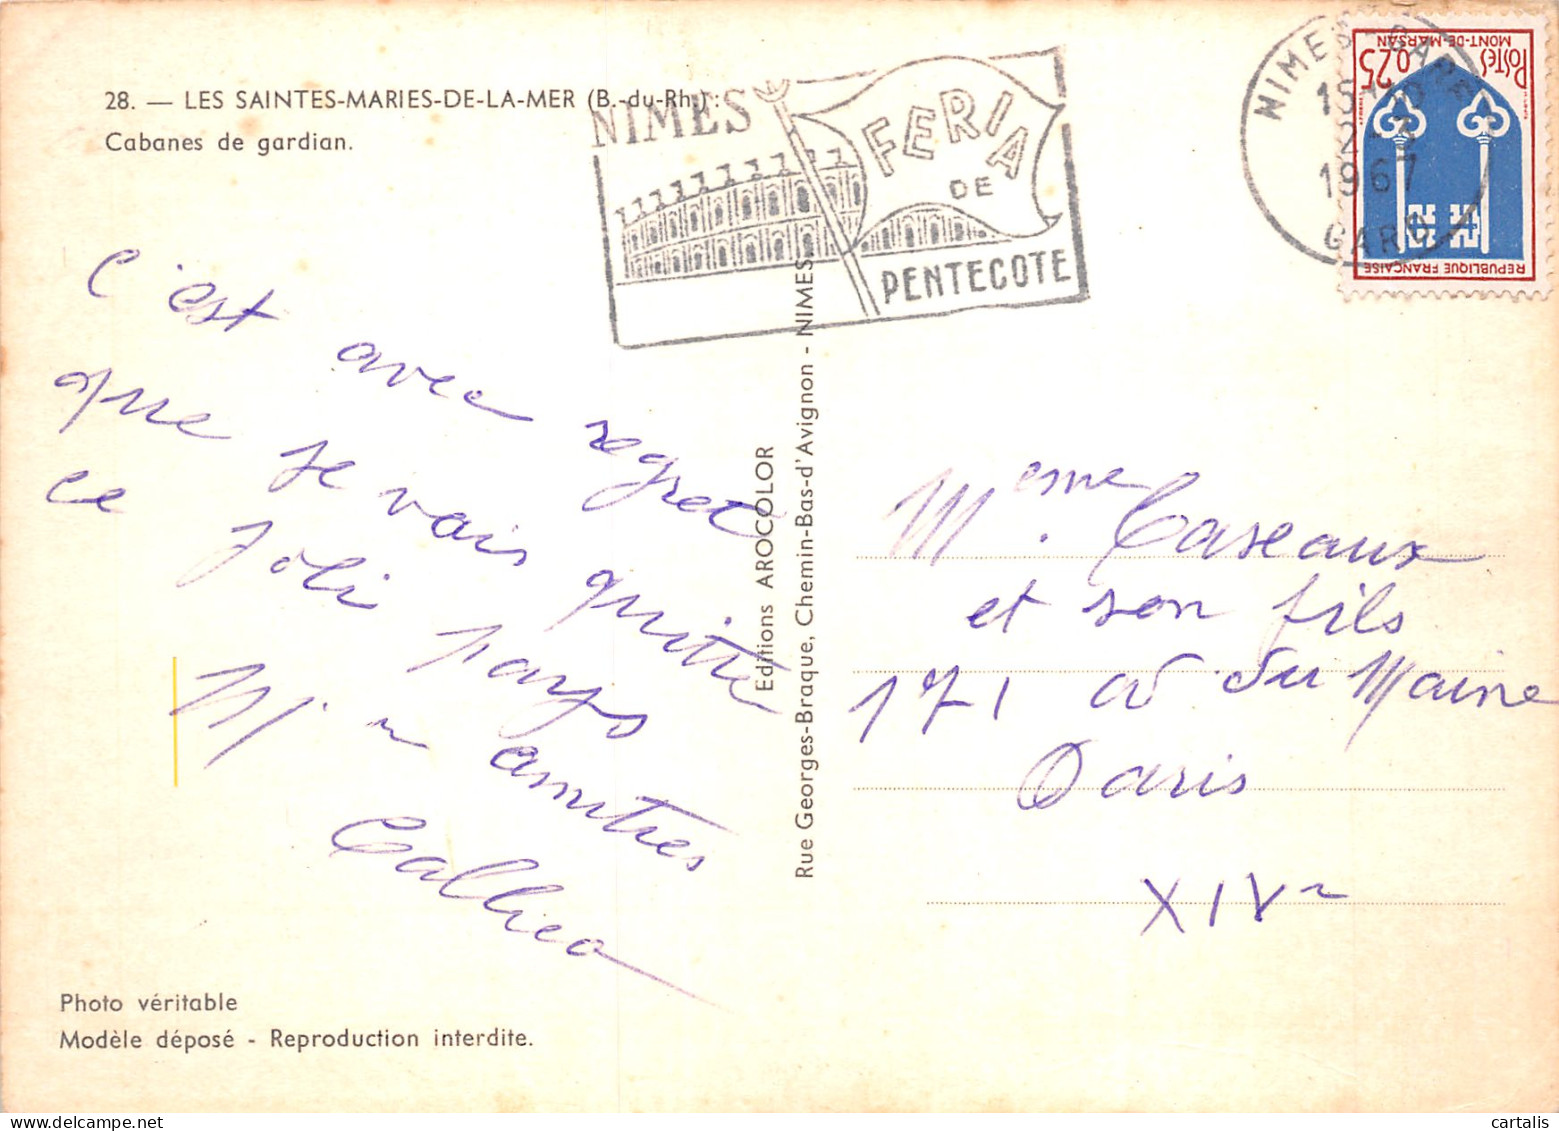 28. — LES SAINTES-MARIES-DE-LA-MER (B.-du-Rh.) :
Cabanes de gardian.
NIMES
FERIA
DE
PENTECOTE
NIMES-GARE
15H30
2-3
1967
GARD
POSTES
0,25
MONT-DE-MARSAN
REPUBLIQUE FRANÇAISE
C'est avec regret
que je vais quitter
ce joli pays
M. amitiés
Editions AROCOLOR
Rue Georges-Braque, Chemin-Bas-d'Avignon - NIMES
Meme. Caseaux
et son fils
171 av du Maine
Paris
XIVe
Photo véritable
Modèle déposé - Reproduction interdite.
cartalis